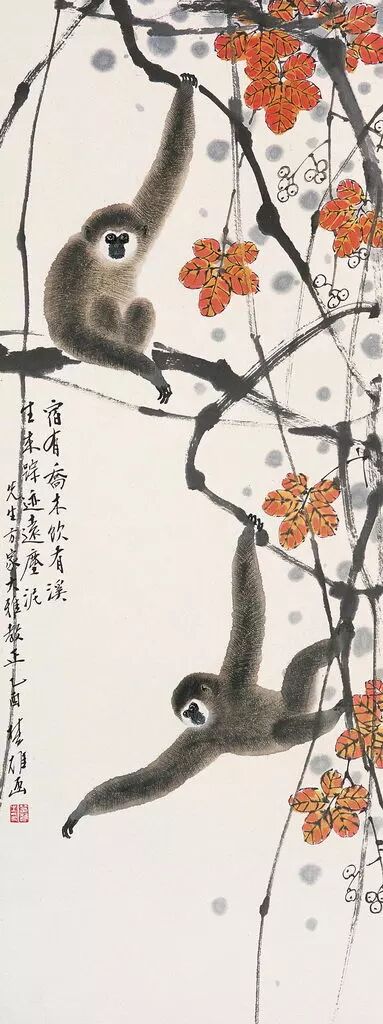 宿有喬木飲有溪
生来踪迹遠塵泥
先生方家大雅教正乙酉楚雄画